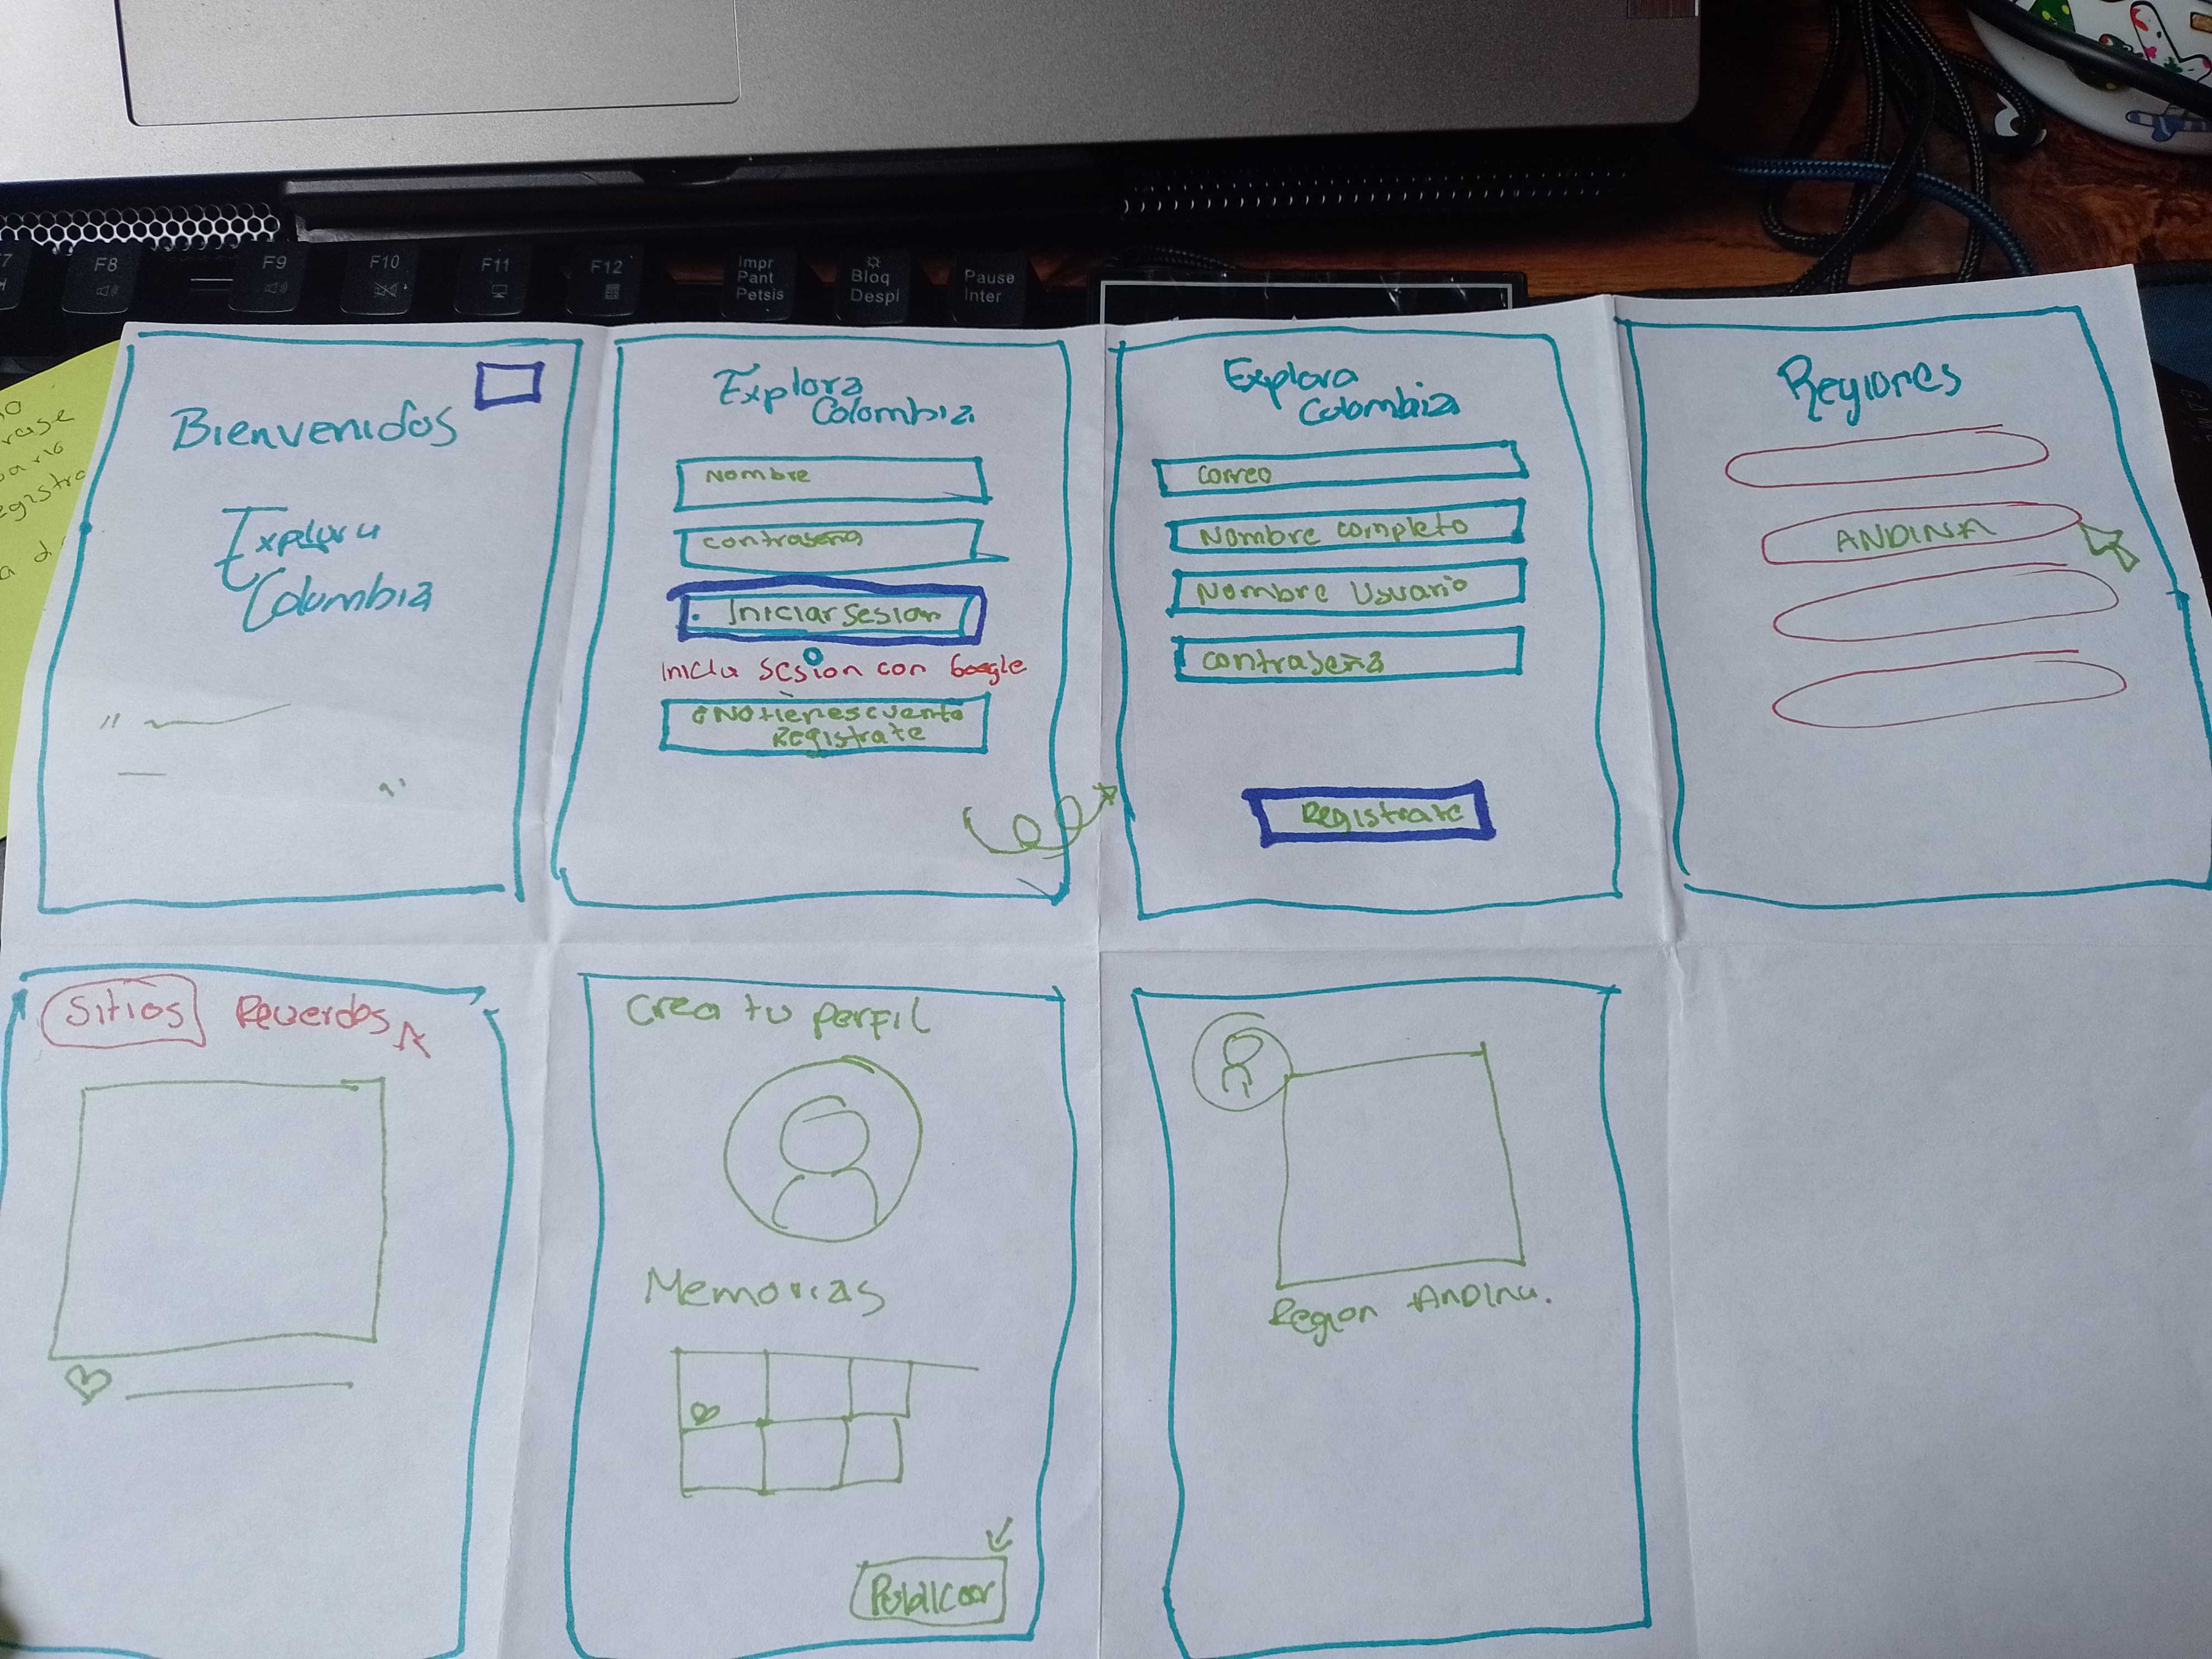 F8
F9
F10
F11
F12
Impr
Pant
Petsis
Bloq
Despl
Pause
Inter
Bienvenidos
Explora
Colombia
Explora
Colombia
Nombre
contraseña
Iniciar sesion
Inicia sesion con Google
No tienes cuenta
Registrate
Explora
Colombia
correo
Nombre completo
Nombre Usuario
contraseña
Registrate
Regiones
ANDINA
Sitios Recuerdos
Crea tu perfil
Memorias
Publicar
Region Andina.